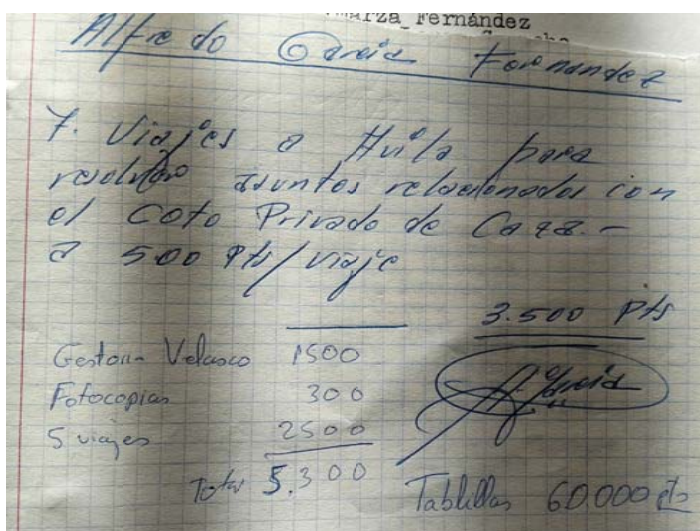 Fernández
Alfredo Garcia Fernandez
7. Viajes a Avila para
resolver asuntos relacionados con
el Coto Privado de Caza.-
a 500 Pts/viaje
3.500 Pts
Gestoria Velasco 1500
Fotocopias 300
A. Garcia
5 viajes 2500
Total 5.300
Tablillas 60.000 pts